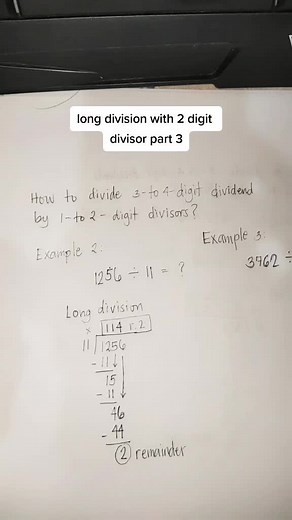 long division with 2 digit
divisor part 3
How to divide 3-to 4-digit dividend
by 1-to 2-digit divisors?
Example 2:
1256 ÷ 11 = ?
Example 3:
3962 ÷
Long division
x 114 r.2
11 1256
- 11
15
- 11
46
- 44
2 remainder